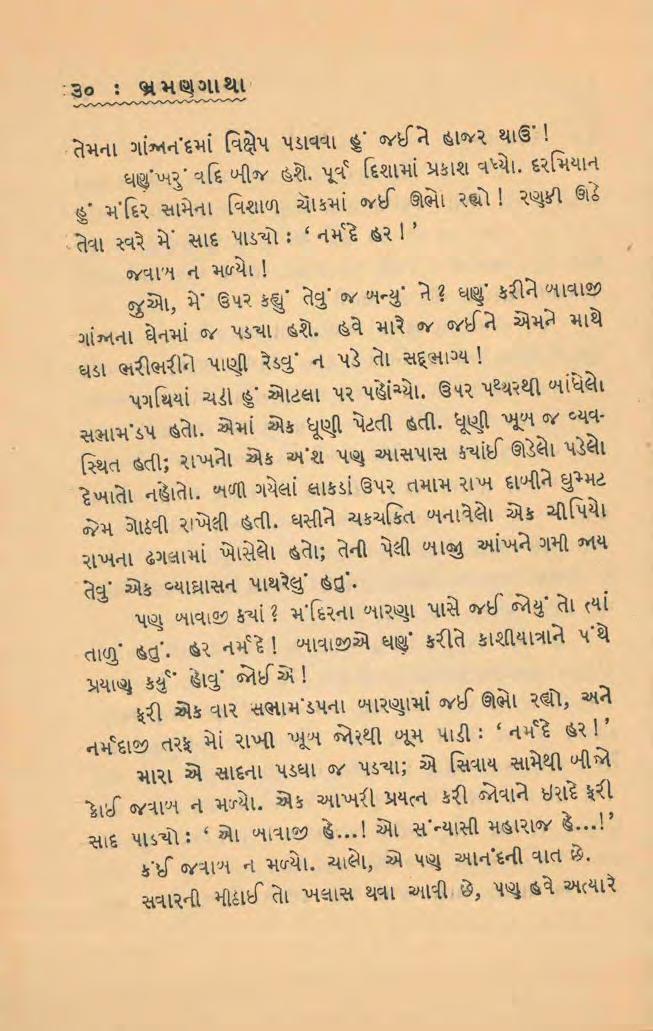 ૩૦ : ભ્રમણગાથા
તેમના ગાંજાનંદમાં વિક્ષેપ પડાવવા હું જઈને હાજર થાઉં !
ઘણુંખરું વદિ બીજ હશે. પૂર્વ દિશામાં પ્રકાશ વધ્યો. દરમિયાન
હું મંદિર સામેના વિશાળ ચોકમાં જઈ ઊભો રહ્યો ! રણકી ઊઠે
તેવા સ્વરે મેં સાદ પાડ્યો : ‘ નર્મદે હર ! ’
જવાબ ન મળ્યો !
જુઓ, મેં ઉપર કહ્યું તેવું જ બન્યું ને ? ઘણું કરીને બાવાજી
ગાંજાના ઘેનમાં જ પડ્યા હશે. હવે મારે જ જઈને એમને માથે
ઘડા ભરીભરીને પાણી રેડવું ન પડે તો સદ્દભાગ્ય !
પગથિયાં ચડી હું ઓટલા પર પહોંચ્યો. ઉપર પથ્થરથી બાંધેલો
સભામંડપ હતો. એમાં એક ધૂણી પેટતી હતી. ધૂણી ખૂબ જ વ્યવ-
સ્થિત હતી; રાખનો એક અંશ પણ આસપાસ ક્યાંઈ ઊડેલો પડેલો
દેખાતો નહોતો. બળી ગયેલાં લાકડાં ઉપર તમામ રાખ દાબીને ઘુમ્મટ
જેમ ગોઠવી રાખેલી હતી. ઘસીને ચકચકિત બનાવેલો એક ચીપિયો
રાખના ઢગલામાં ખોસેલો હતો; તેની પેલી બાજુ આંખને ગમી જાય
તેવું એક વ્યાઘ્રાસન પાથરેલું હતું.
પણ બાવાજી ક્યાં ? મંદિરના બારણા પાસે જઈ જોયું તો ત્યાં
તાળું હતું. હર નર્મદે ! બાવાજીએ ઘણું કરીતે કાશીયાત્રાને પંથે
પ્રયાણ કર્યું હોવું જોઈએ !
ફરી એક વાર સભામંડપના બારણામાં જઈ ઊભો રહ્યો, અને
નર્મદાજી તરફ મોં રાખી ખૂબ જોરથી બૂમ પાડી : ‘ નર્મદે હર ! ’
મારા એ સાદના પડઘા જ પડ્યા; એ સિવાય સામેથી બીજો
કોઈ જવાબ ન મળ્યો. એક આખરી પ્રયત્ન કરી જોવાને ઇરાદે ફરી
સાદ પાડ્યો : ‘ ઓ બાવાજી હે...! ઓ સંન્યાસી મહારાજ હે...! ’
કંઈ જવાબ ન મળ્યો. ચાલો, એ પણ આનંદની વાત છે.
સવારની મીઠાઈ તો ખલાસ થવા આવી છે, પણ હવે અત્યારે